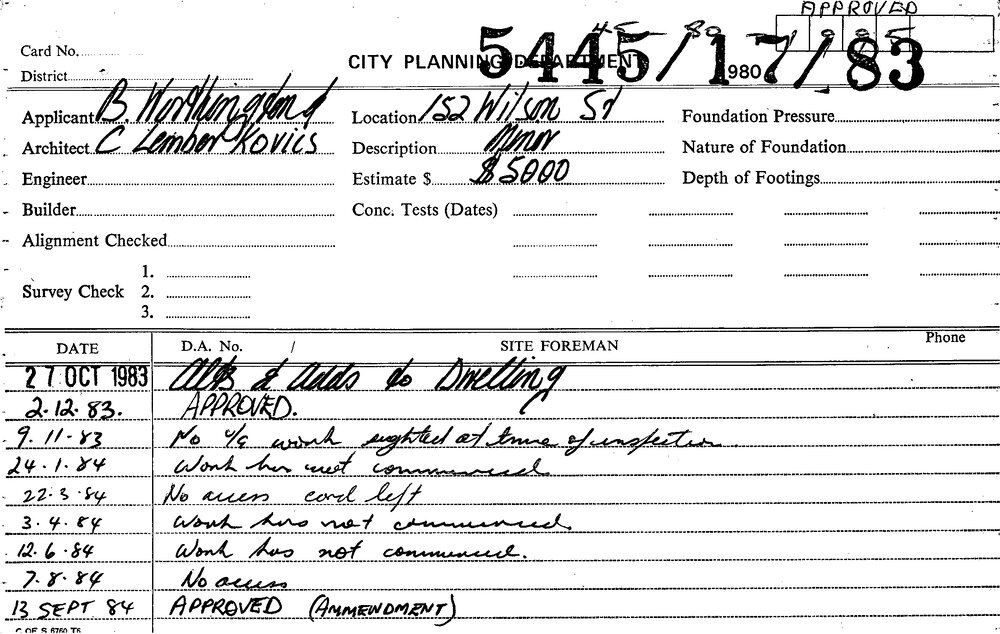 APPROVED
45 80 1985
5445/17/83
Card No.
CITY PLANNING DEPARTMENT 1980
District
Applicant B. Worthington Location 152 Wilson St Foundation Pressure
Architect C Lember Kovics Description Minor Nature of Foundation
Engineer Estimate $ $5000 Depth of Footings
Builder Conc. Tests (Dates)
Alignment Checked
1.
Survey Check 2.
3.
DATE D.A. No. / SITE FOREMAN Phone
27 OCT 1983 Alts & Adds to Dwelling
2.12.83. APPROVED.
9.11.83 No u/a work sighted at time of inspection
24.1.84 Work has not commenced
22.3.84 No access card left
3.4.84 Work has not commenced.
12.6.84 Work has not commenced.
7.8.84 No access
13 SEPT 84 APPROVED (AMMENDMENT)
C OF S 6760 T6